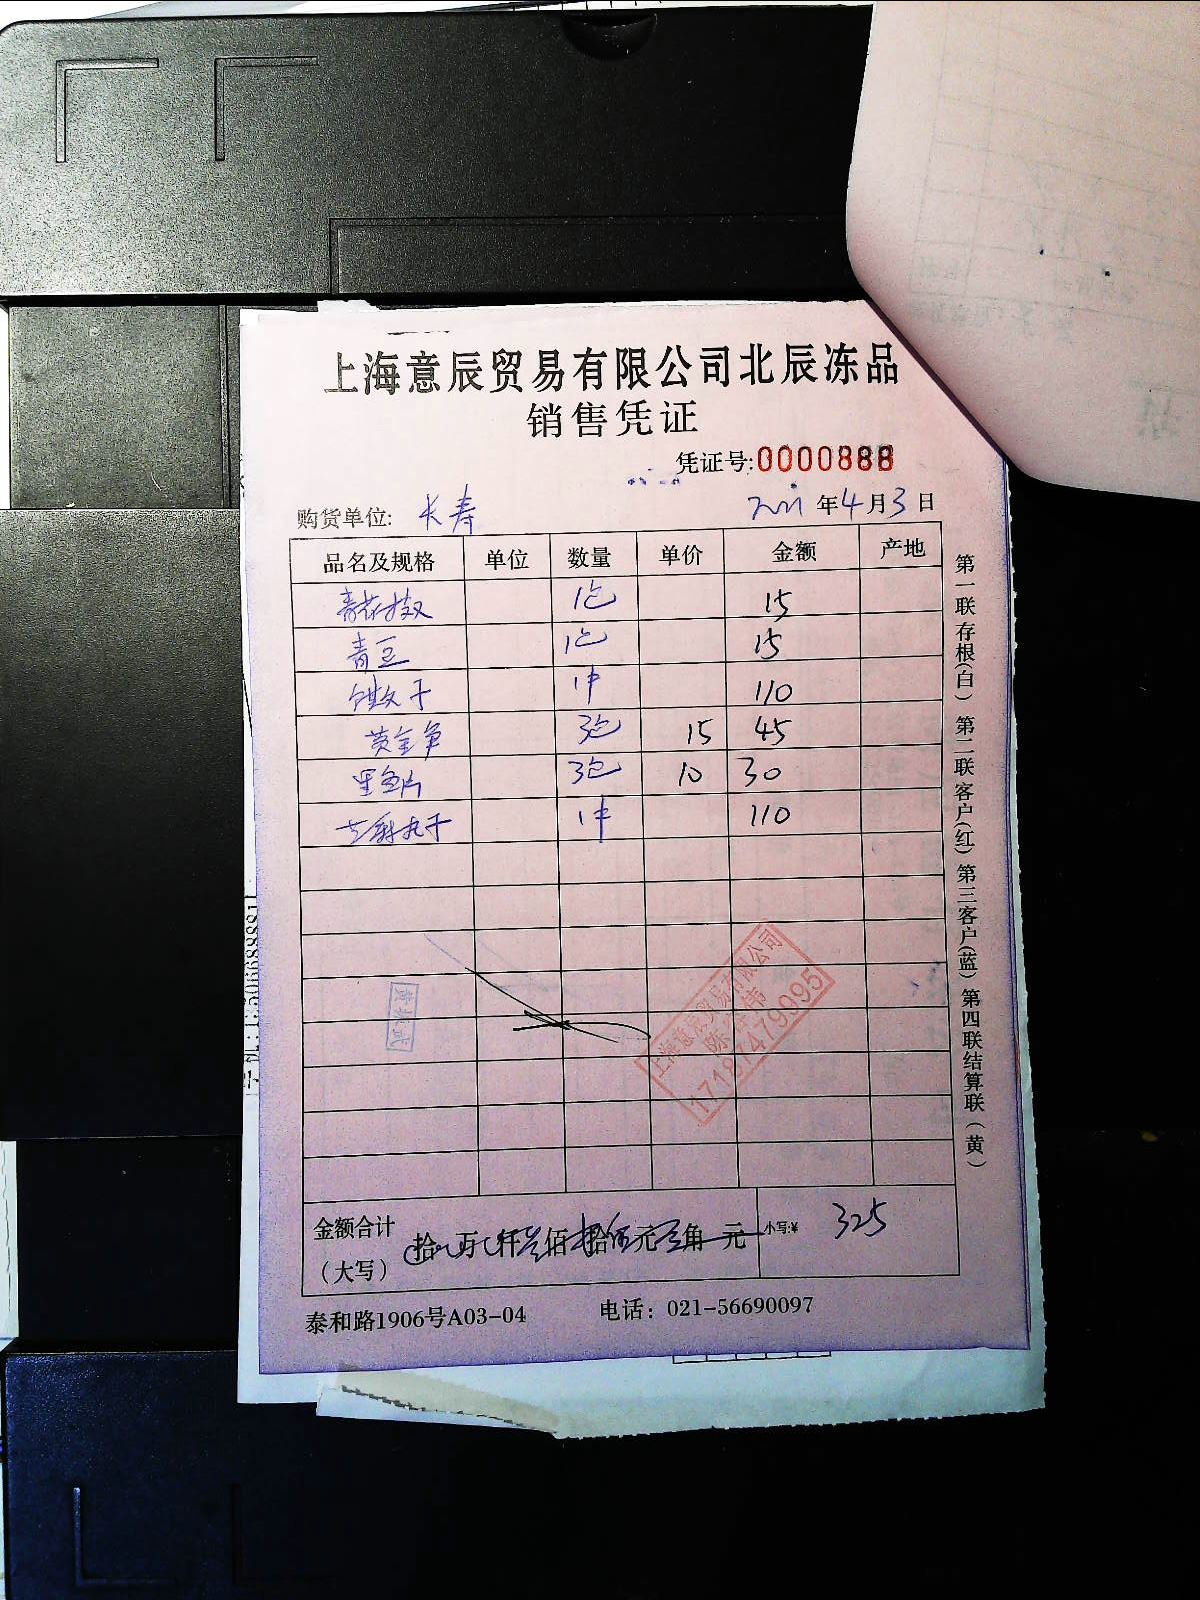 上海意辰贸易有限公司北辰冻品
销售凭证
凭证号:0000888
购货单位: 长寿 2021年4月3日
品名及规格 单位 数量 单价 金额 产地
青花椒 1包 15
青豆 1包 15
1件 110
黄金笋 3包 15 45
黑鱼片 3包 10 30
1件 110
第一联存根(白) 第二联客户(红) 第三客户(蓝) 第四联结算联(黄)
上海意辰贸易有限公司
17187479095
金额合计 拾 万 仟 叁佰 拾伍元 角 元 小写:¥ 325
(大写)
泰和路1906号A03-04 电话: 021-56690097